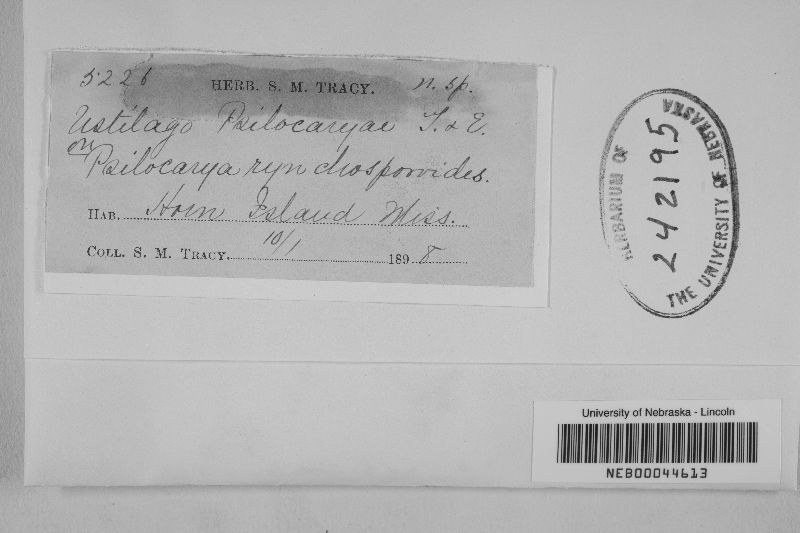 5226 HERB. S. M. TRACY. n. sp.
Ustilago Psilocaryae T. & E.
on Psilocarya rynchosporoides.
HAB. Horn Island Miss.
COLL. S. M. TRACY. 10/1 1898
HERBARIUM OF
242195
THE UNIVERSITY OF NEBRASKA
University of Nebraska - Lincoln
NEB00044613